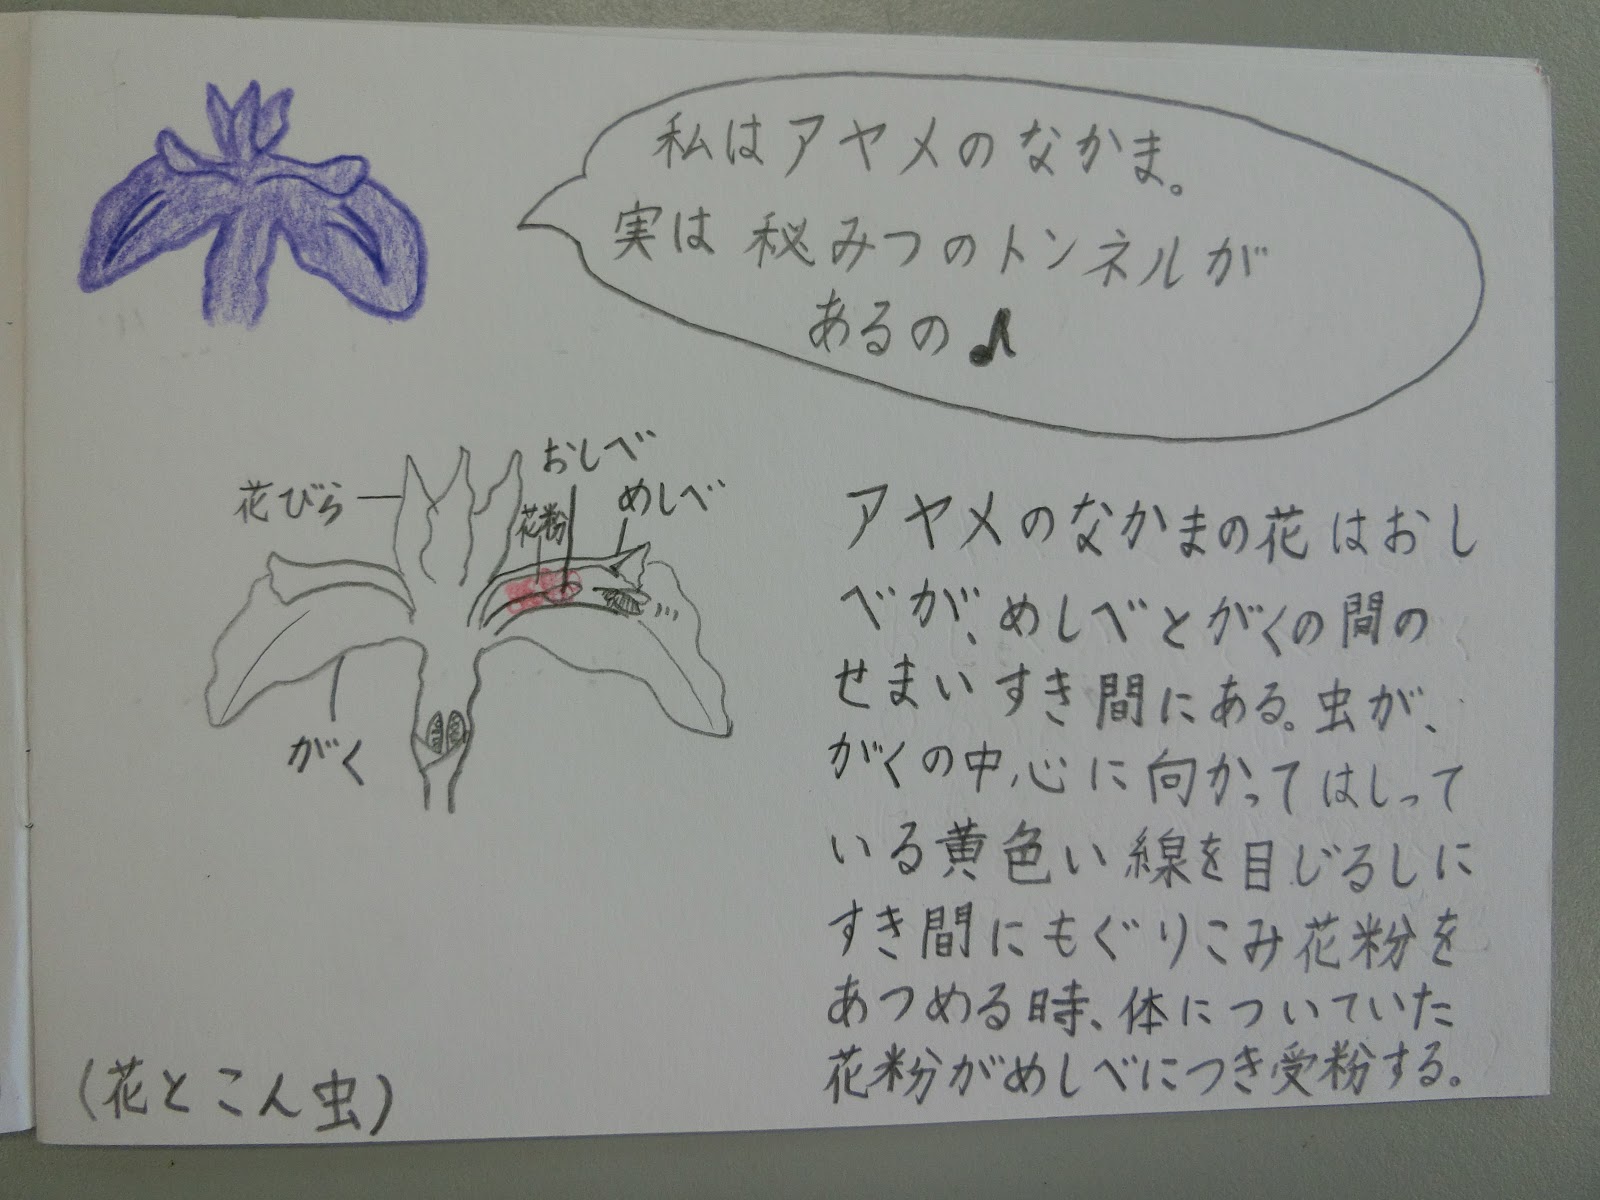 私はアヤメのなかま。
実は秘みつのトンネルが
あるの♪
おしべ
めしべ
花びら
花粉
がく
アヤメのなかまの花はおし
べが、めしべとがくの間の
せまいすき間にある。虫が、
がくの中心に向かってはしって
いる黄色い線を目じるしに
すき間にもぐりこみ花粉を
あつめる時、体についていた
花粉がめしべにつき受粉する。
(花とこん虫)